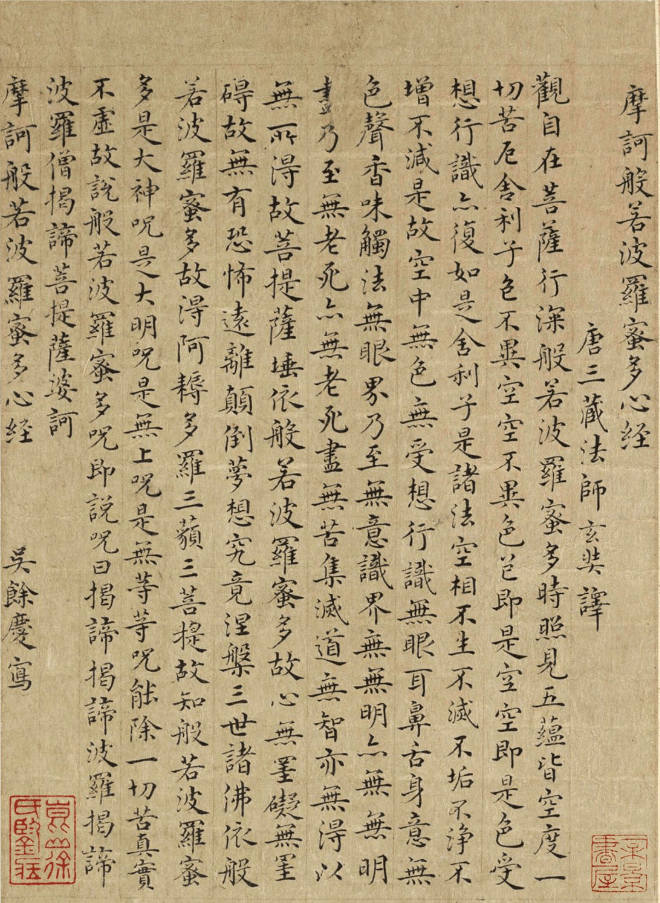 摩訶般若波羅蜜多心経
唐三蔵法師玄奘譯
觀自在菩薩行深般若波羅蜜多時照見五蘊皆空度一
切苦厄舍利子色不異空空不異色色即是空空即是色受
想行識亦復如是舍利子是諸法空相不生不滅不垢不浄不
增不減是故空中無色無受想行識無眼耳鼻舌身意無
色聲香味觸法無眼界乃至無意識界無無明亦無無明
盡乃至無老死亦無老死盡無苦集滅道無智亦無得以
無所得故菩提薩埵依般若波羅蜜多故心無罣礙無罣
碍故無有恐怖遠離顛倒夢想究竟涅槃三世諸佛依般
若波羅蜜多故得阿耨多羅三藐三菩提故知般若波羅蜜
多是大神呪是大明呪是無上呪是無等等呪能除一切苦真實
不虛故說般若波羅蜜多呪即說呪曰揭諦揭諦波羅揭諦
波羅僧揭諦菩提薩婆訶
摩訶般若波羅蜜多心経 吳餘慶寫